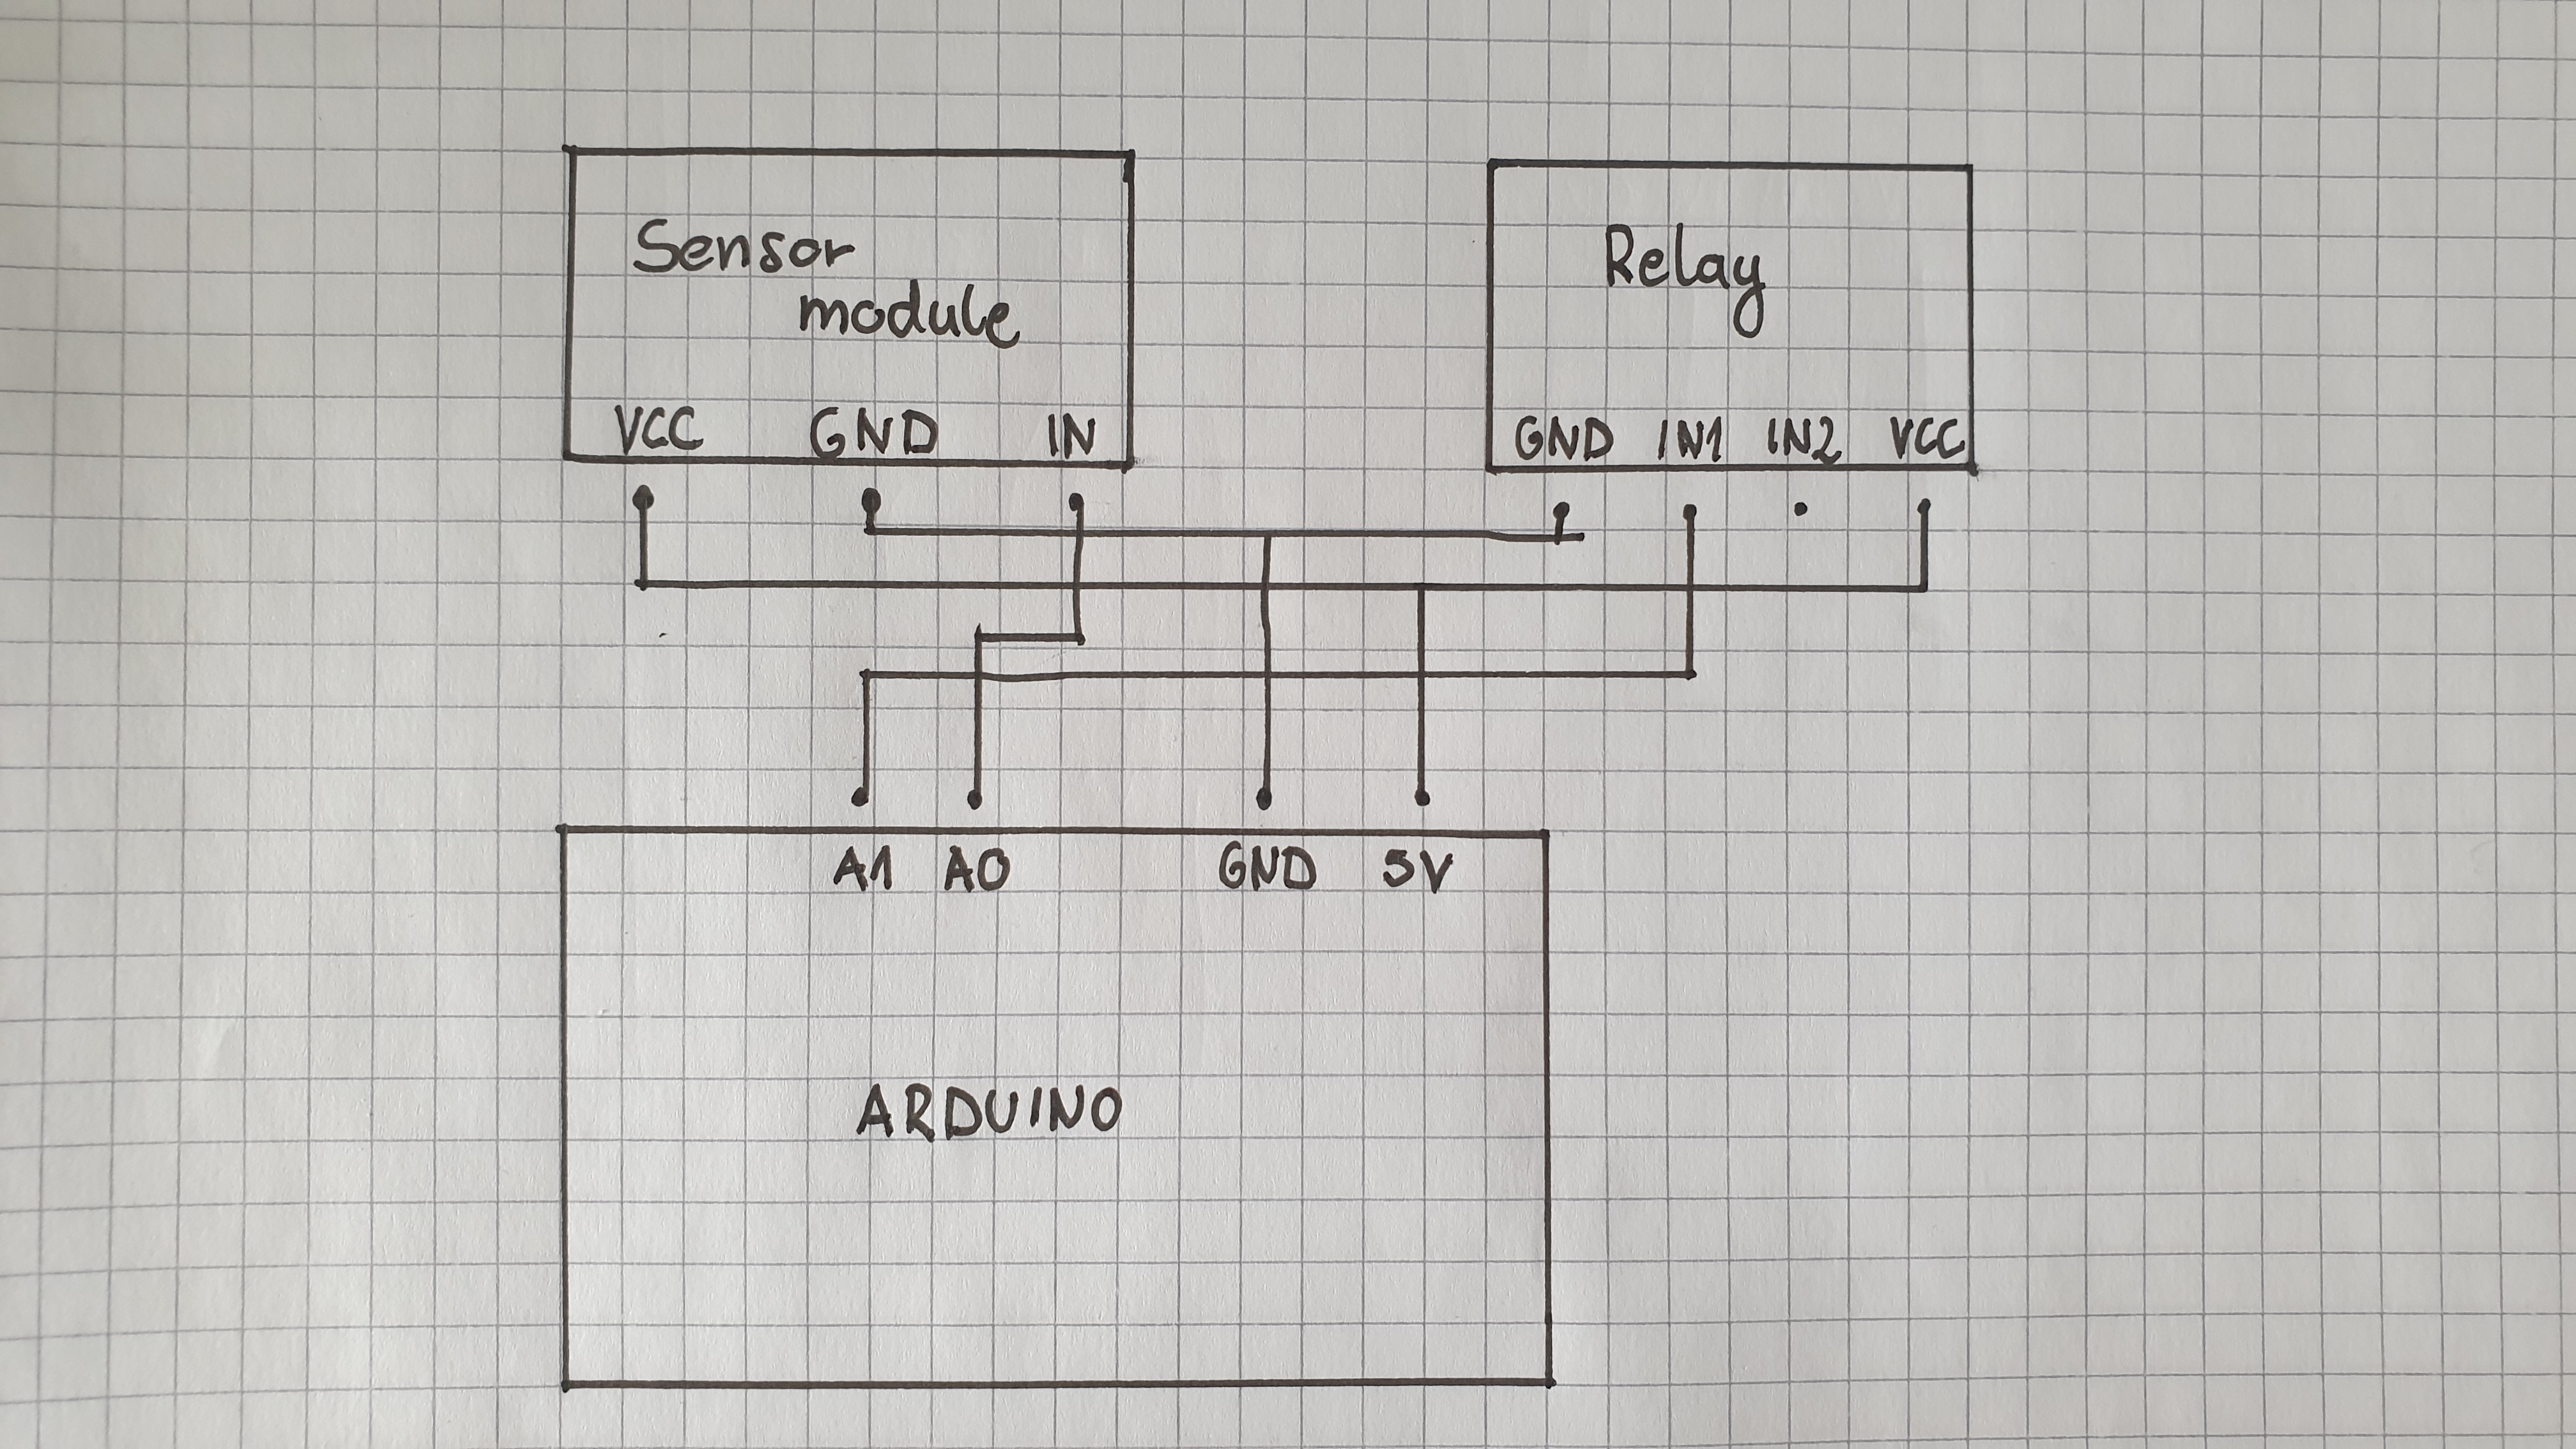 Sensor
module
Relay
VCC GND IN
GND IN1 IN2 VCC
A1 A0 GND 5V
ARDUINO